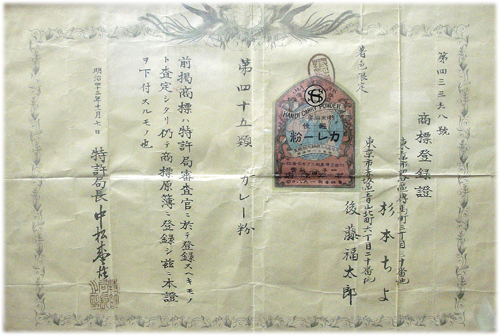 第四三三六八號
商標登錄證
杉本ちよ
東京市赤坂區青山北町六丁目二十番地
後藤福太郎
着色限定
CURRY POWDER
カレー粉
第四十五類 カレー粉
前掲商標ハ特許局審査官ニ於テ登録スヘキモノ
ト査定シタリ仍テ商標原簿ニ登録シ茲ニ本證
ヲ下付スルモノ也
明治四十三年十月七日
特許局長中松盛雄